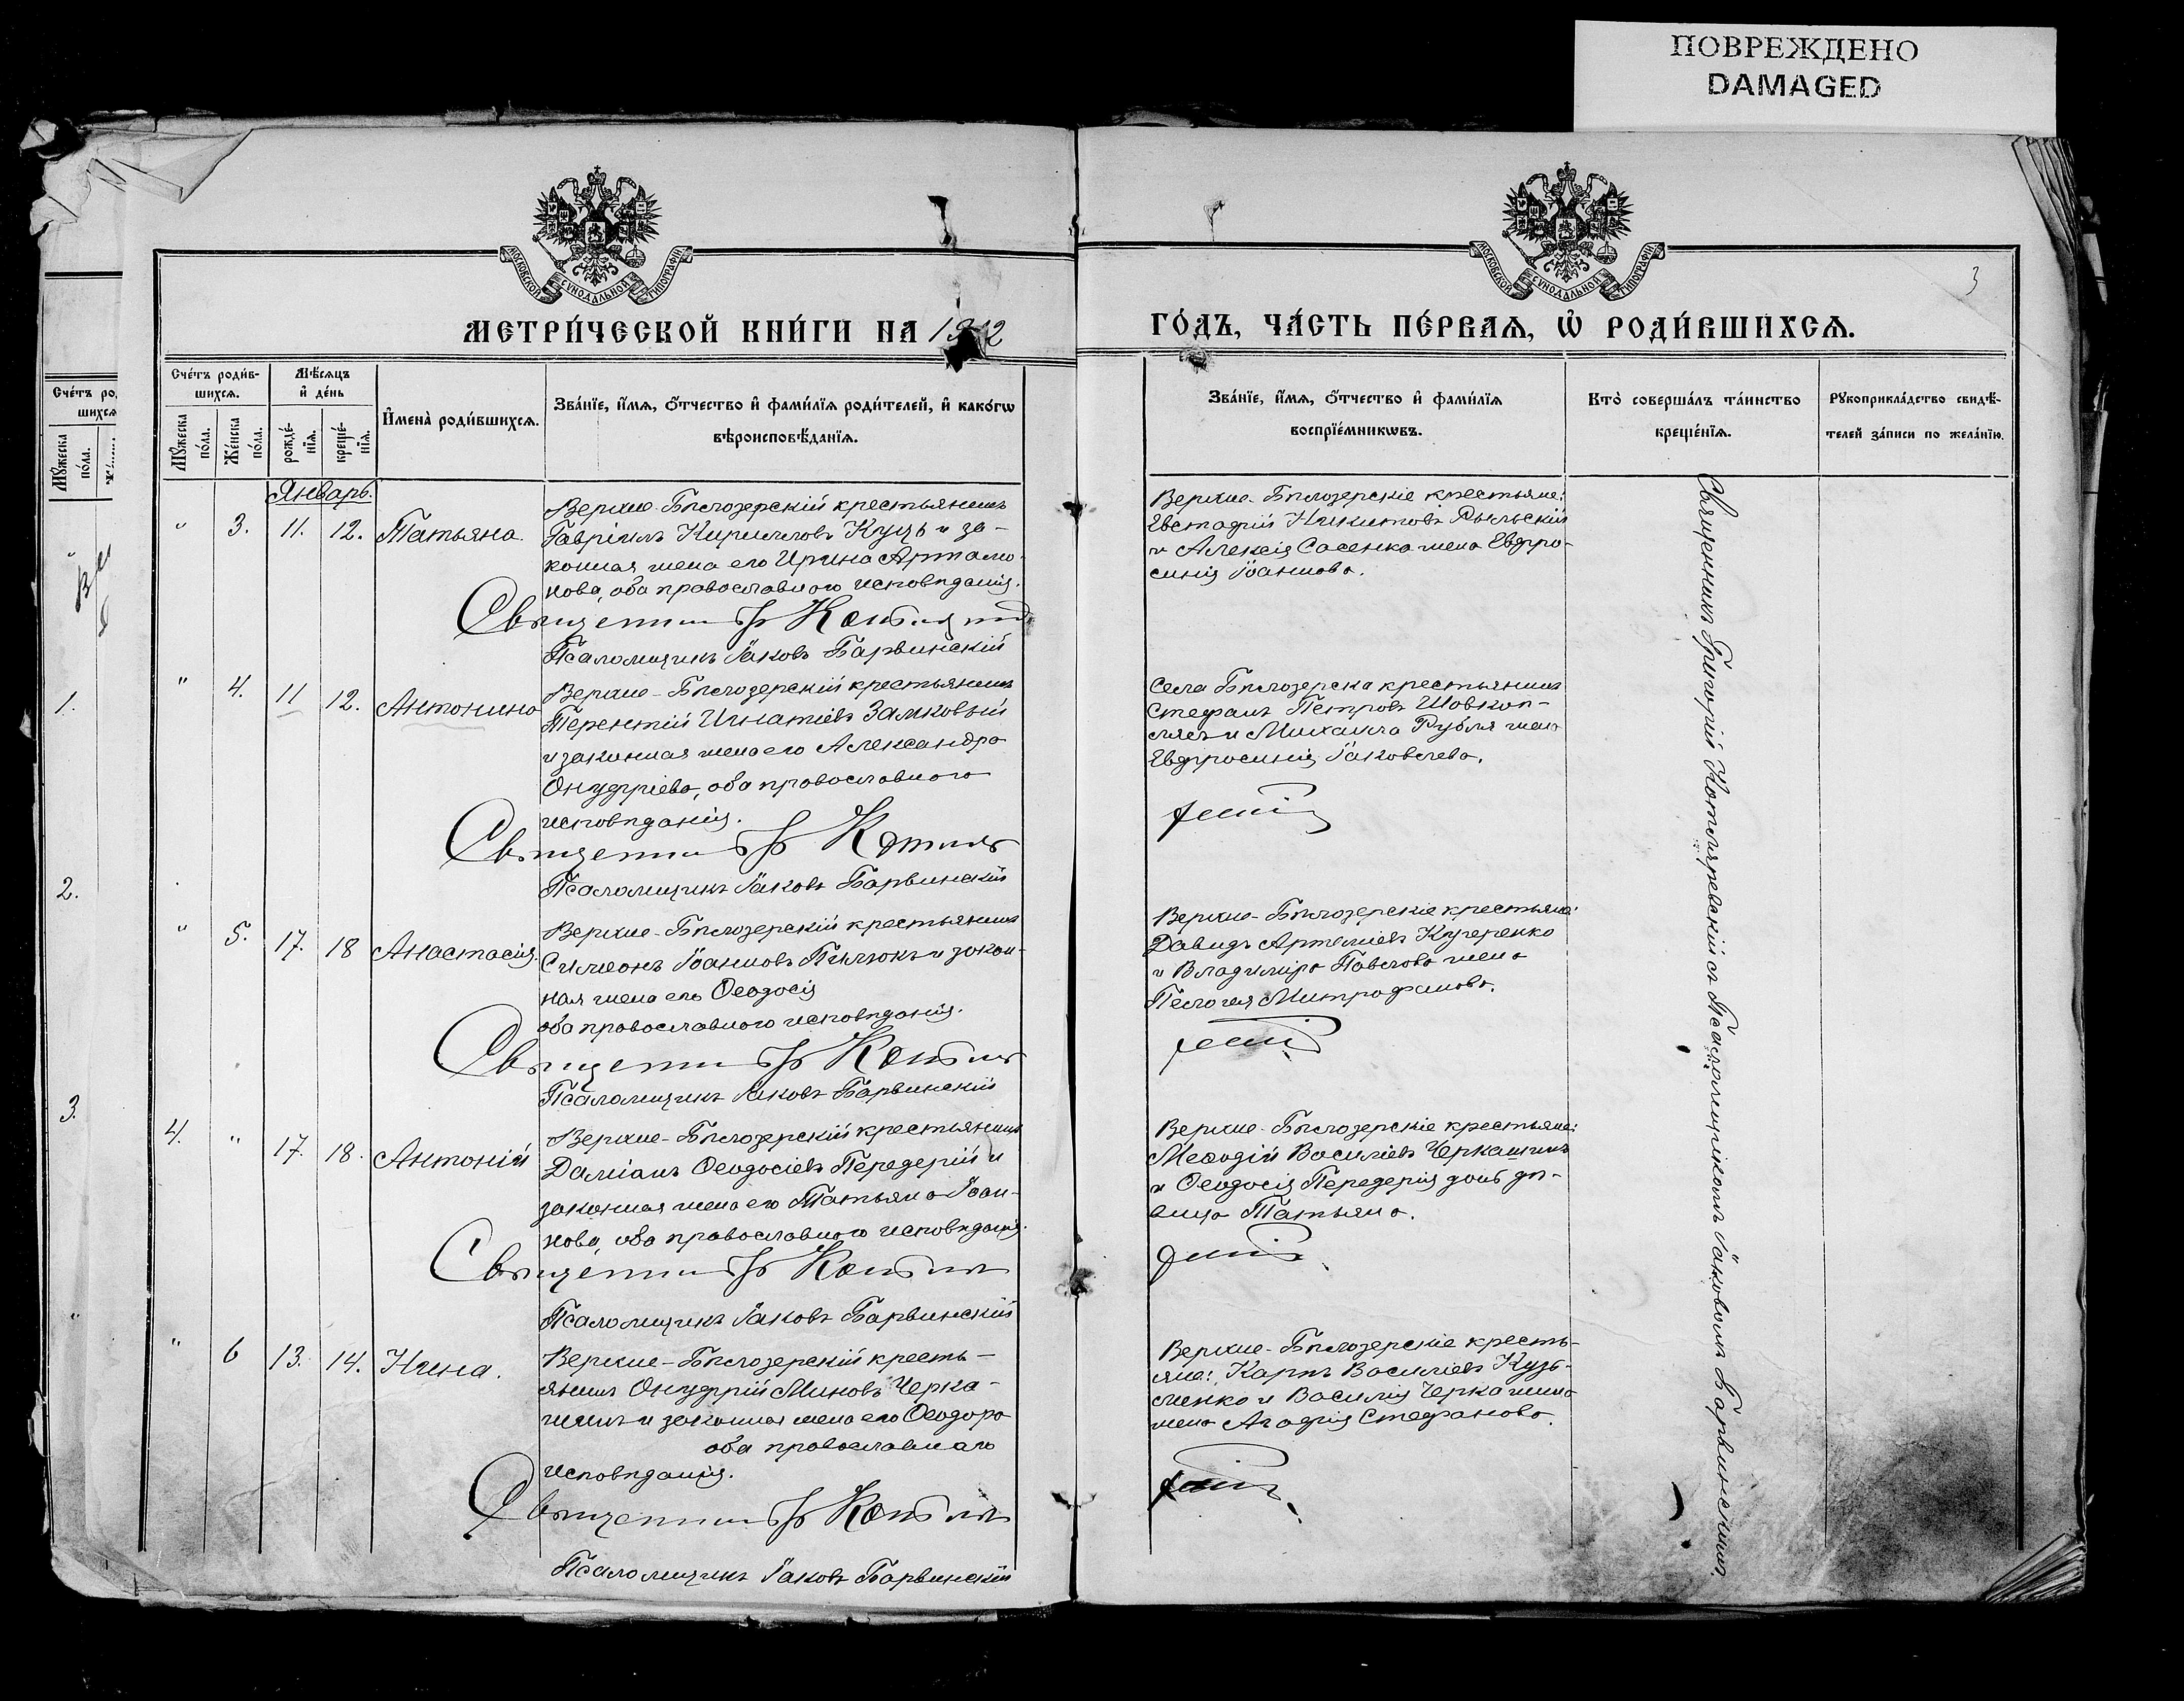 ПОВРЕЖДЕНО
DAMAGED
МОСКОВСКОЙ СѴНОДАЛЬНОЙ ТИПОГРАФІИ
МОСКОВСКОЙ СѴНОДАЛЬНОЙ ТИПОГРАФІИ
3
МЕТРИ́ЧЕСКОЙ КНИ́ГИ НА 1912
ГО́ДЪ, ЧА́СТЬ ПЕ́РВАѦ, Ѡ҆ РОДИ́ВШИХСѦ.
Сче́тъ роди́в-
шихсѧ.
Мꙋ́жеска по́ла.
Же́нска по́ла.
Мѣ́сѧцъ
и҆ де́нь
рожде́-
нїѧ.
креще́-
нїѧ.
И҆мена̀ роди́вшихсѧ.
Зва́нїе, и҆́мѧ, ѻ҆́тчество и҆ фами́лїѧ роди́телей, и҆ како́гѡ
вѣроисповѣ́данїѧ.
Зва́нїе, и҆́мѧ, ѻ҆́тчество и҆ фами́лїѧ
воспрїе́мникѡвъ.
Кто̀ соверша́лъ та́инство
креще́нїѧ.
Рꙋкоприкла́дство свидѣ́-
телей за́писи по жела́нїю.
Январь.
" 3. 11. 12. Татьяна.
Верхне-Бѣлозерскій крестьянинъ
Гавріилъ Кирилловъ Куцъ и за-
конная жена его Ирина Артамо-
нова, оба православного исповѣданія.
Священникъ Гр Котляр
Псаломщикъ Іаковъ Барвинскій
Верхне-Бѣлозерскіе крестьяне:
Евстафій Никитовъ Рыльскій
и Алексія Сасенка жена Евфро-
синія Іоаннова.
" 4. 11 12. Антонина
Верхне-Бѣлозерскій крестьянинъ
Терентій Игнатіевъ Замковый
и законная жена его Александра
Онуфріева, оба православного
исповѣданія.
Священникъ Гр Котляр
Псаломщикъ Іаковъ Барвинскій
Села Бѣлозерка крестьянинъ
Стефанъ Петровъ Шовкоп-
лясъ и Михаила Рубля жена
Евфросинія Іаковлева.
" 5. 17. 18 Анастасія.
Верхне-Бѣлозерскій крестьянинъ
Симеонъ Іоанновъ Пилюкъ и закон-
ная жена его Ѳеодосія
оба православного исповѣданія.
Священникъ Гр Котляр
Псаломщикъ Іаковъ Барвинскій
Верхне-Бѣлозерскіе крестьяне:
Давидъ Артеміевъ Кучеренко
и Владиміра Павлова жена
Пелагея Митрофанова.
4. " 17. 18. Антоній
Верхне-Бѣлозерскій крестьянинъ
Даміанъ Ѳеодосіевъ Передерій и
законная жена его Татьяна Іоан-
нова, оба православного исповѣданія.
Священникъ Гр Котляр
Псаломщикъ Іаковъ Барвинскій
Верхне-Бѣлозерскіе крестьяне:
Меѳодій Василіевъ Черкашинъ
и Ѳеодосія Передерія дочь дѣ-
вица Татьяна.
" 6 13. 14. Нина.
Верхне-Бѣлозерскій кресть-
янинъ Онуфрій Миновъ Черка-
шинъ и законная жена его Ѳеодора
оба православнаго
исповѣданія.
Священникъ Гр Котляр
Псаломщикъ Іаковъ Барвинскій
Верхне-Бѣлозерскіе кресть-
яне: Карпъ Василіевъ Кузь-
менко и Василія Черкашина
жена Агафія Стефанова.
Священникъ Григорій Котляревскій съ Псаломщикомъ Іаковомъ Барвинскимъ.
Сче́тъ ро
шихсѧ
Мꙋ́жеска
по́ла.
1.
2.
3.